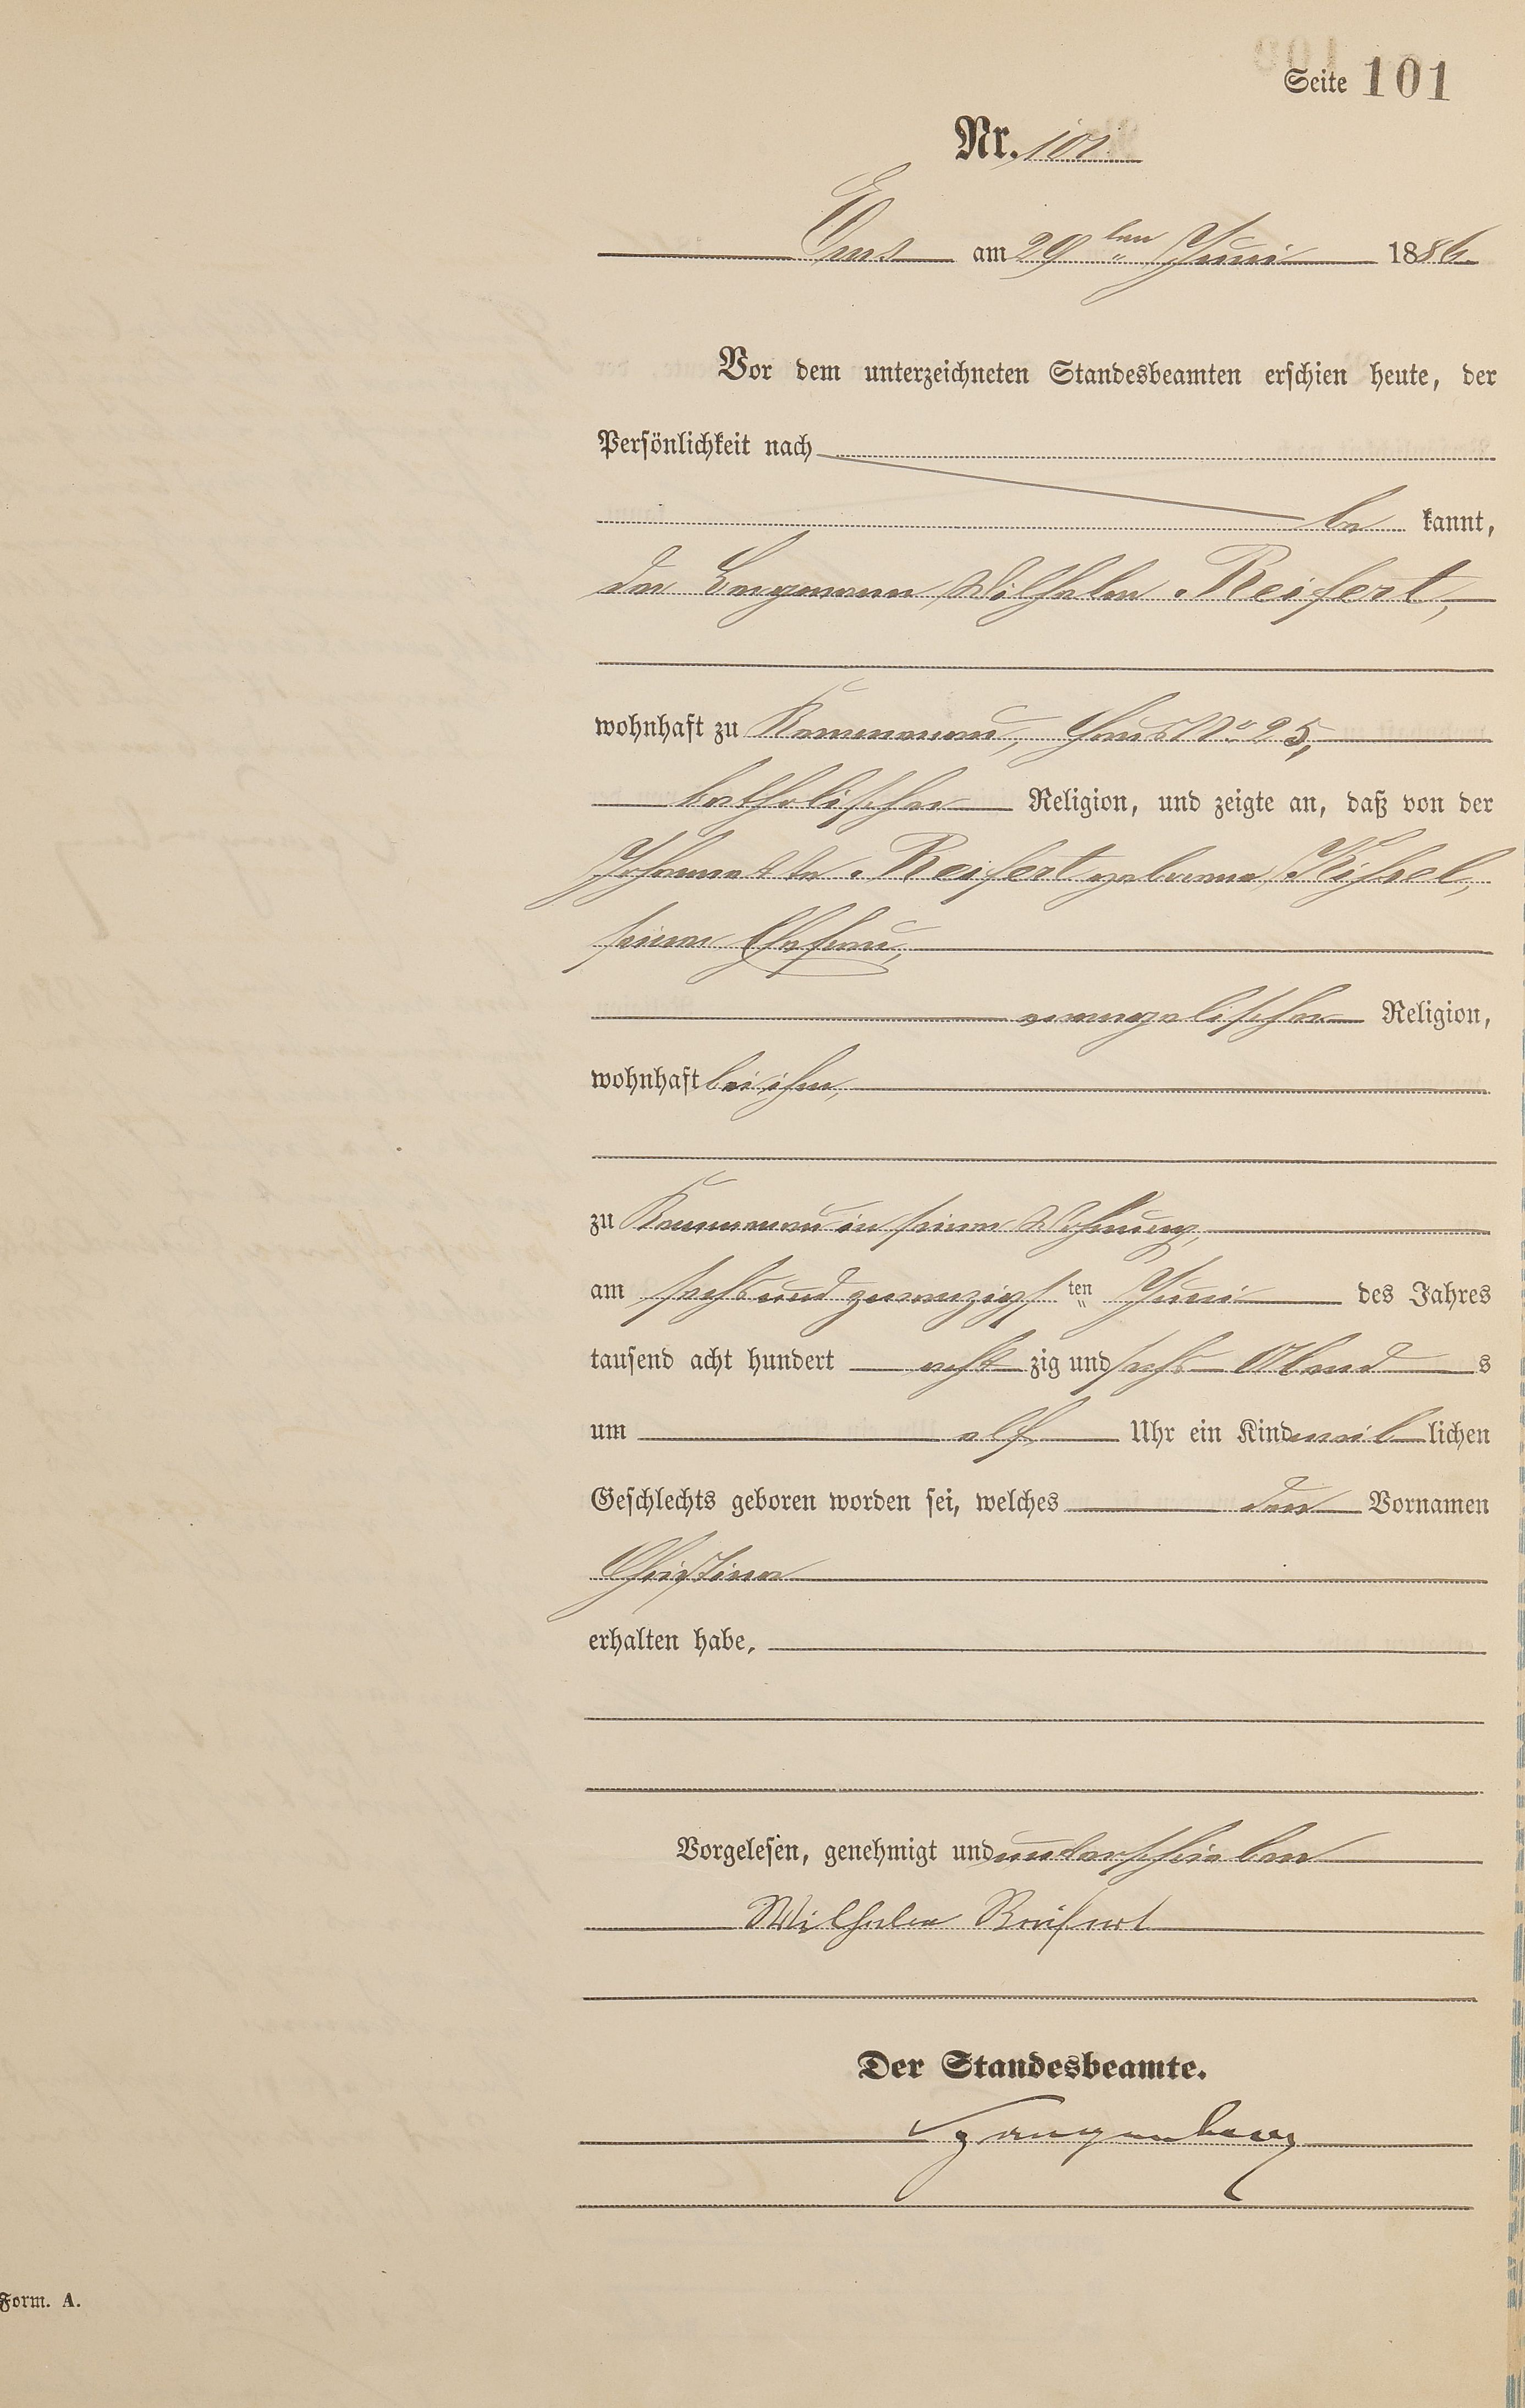 Seite 101
Nr. 101
Ems am 29ten Juni 1886.
Vor dem unterzeichneten Standesbeamten erschien heute, der
Persönlichkeit nach
be kannt,
der Bergmann Wilhelm Reifert,
wohnhaft zu Kemmenau, Haus No 25,
katholischer Religion, und zeigte an, daß von der
Johannette Reifert geborene
seiner Ehefrau,
evangelischer Religion,
wohnhaft bei ihm,
zu Kemmenau in seiner Wohnung,
am sechsundzwanzigsten Juni des Jahres
tausend acht hundert acht zig und sechs Abend s
um elf Uhr ein Kind weib lichen
Geschlechts geboren worden sei, welches den Vornamen
Christina
erhalten habe,
Vorgelesen, genehmigt und unterschrieben
Wilhelm Reifert
Der Standesbeamte.
Spangenberg
Form. A.